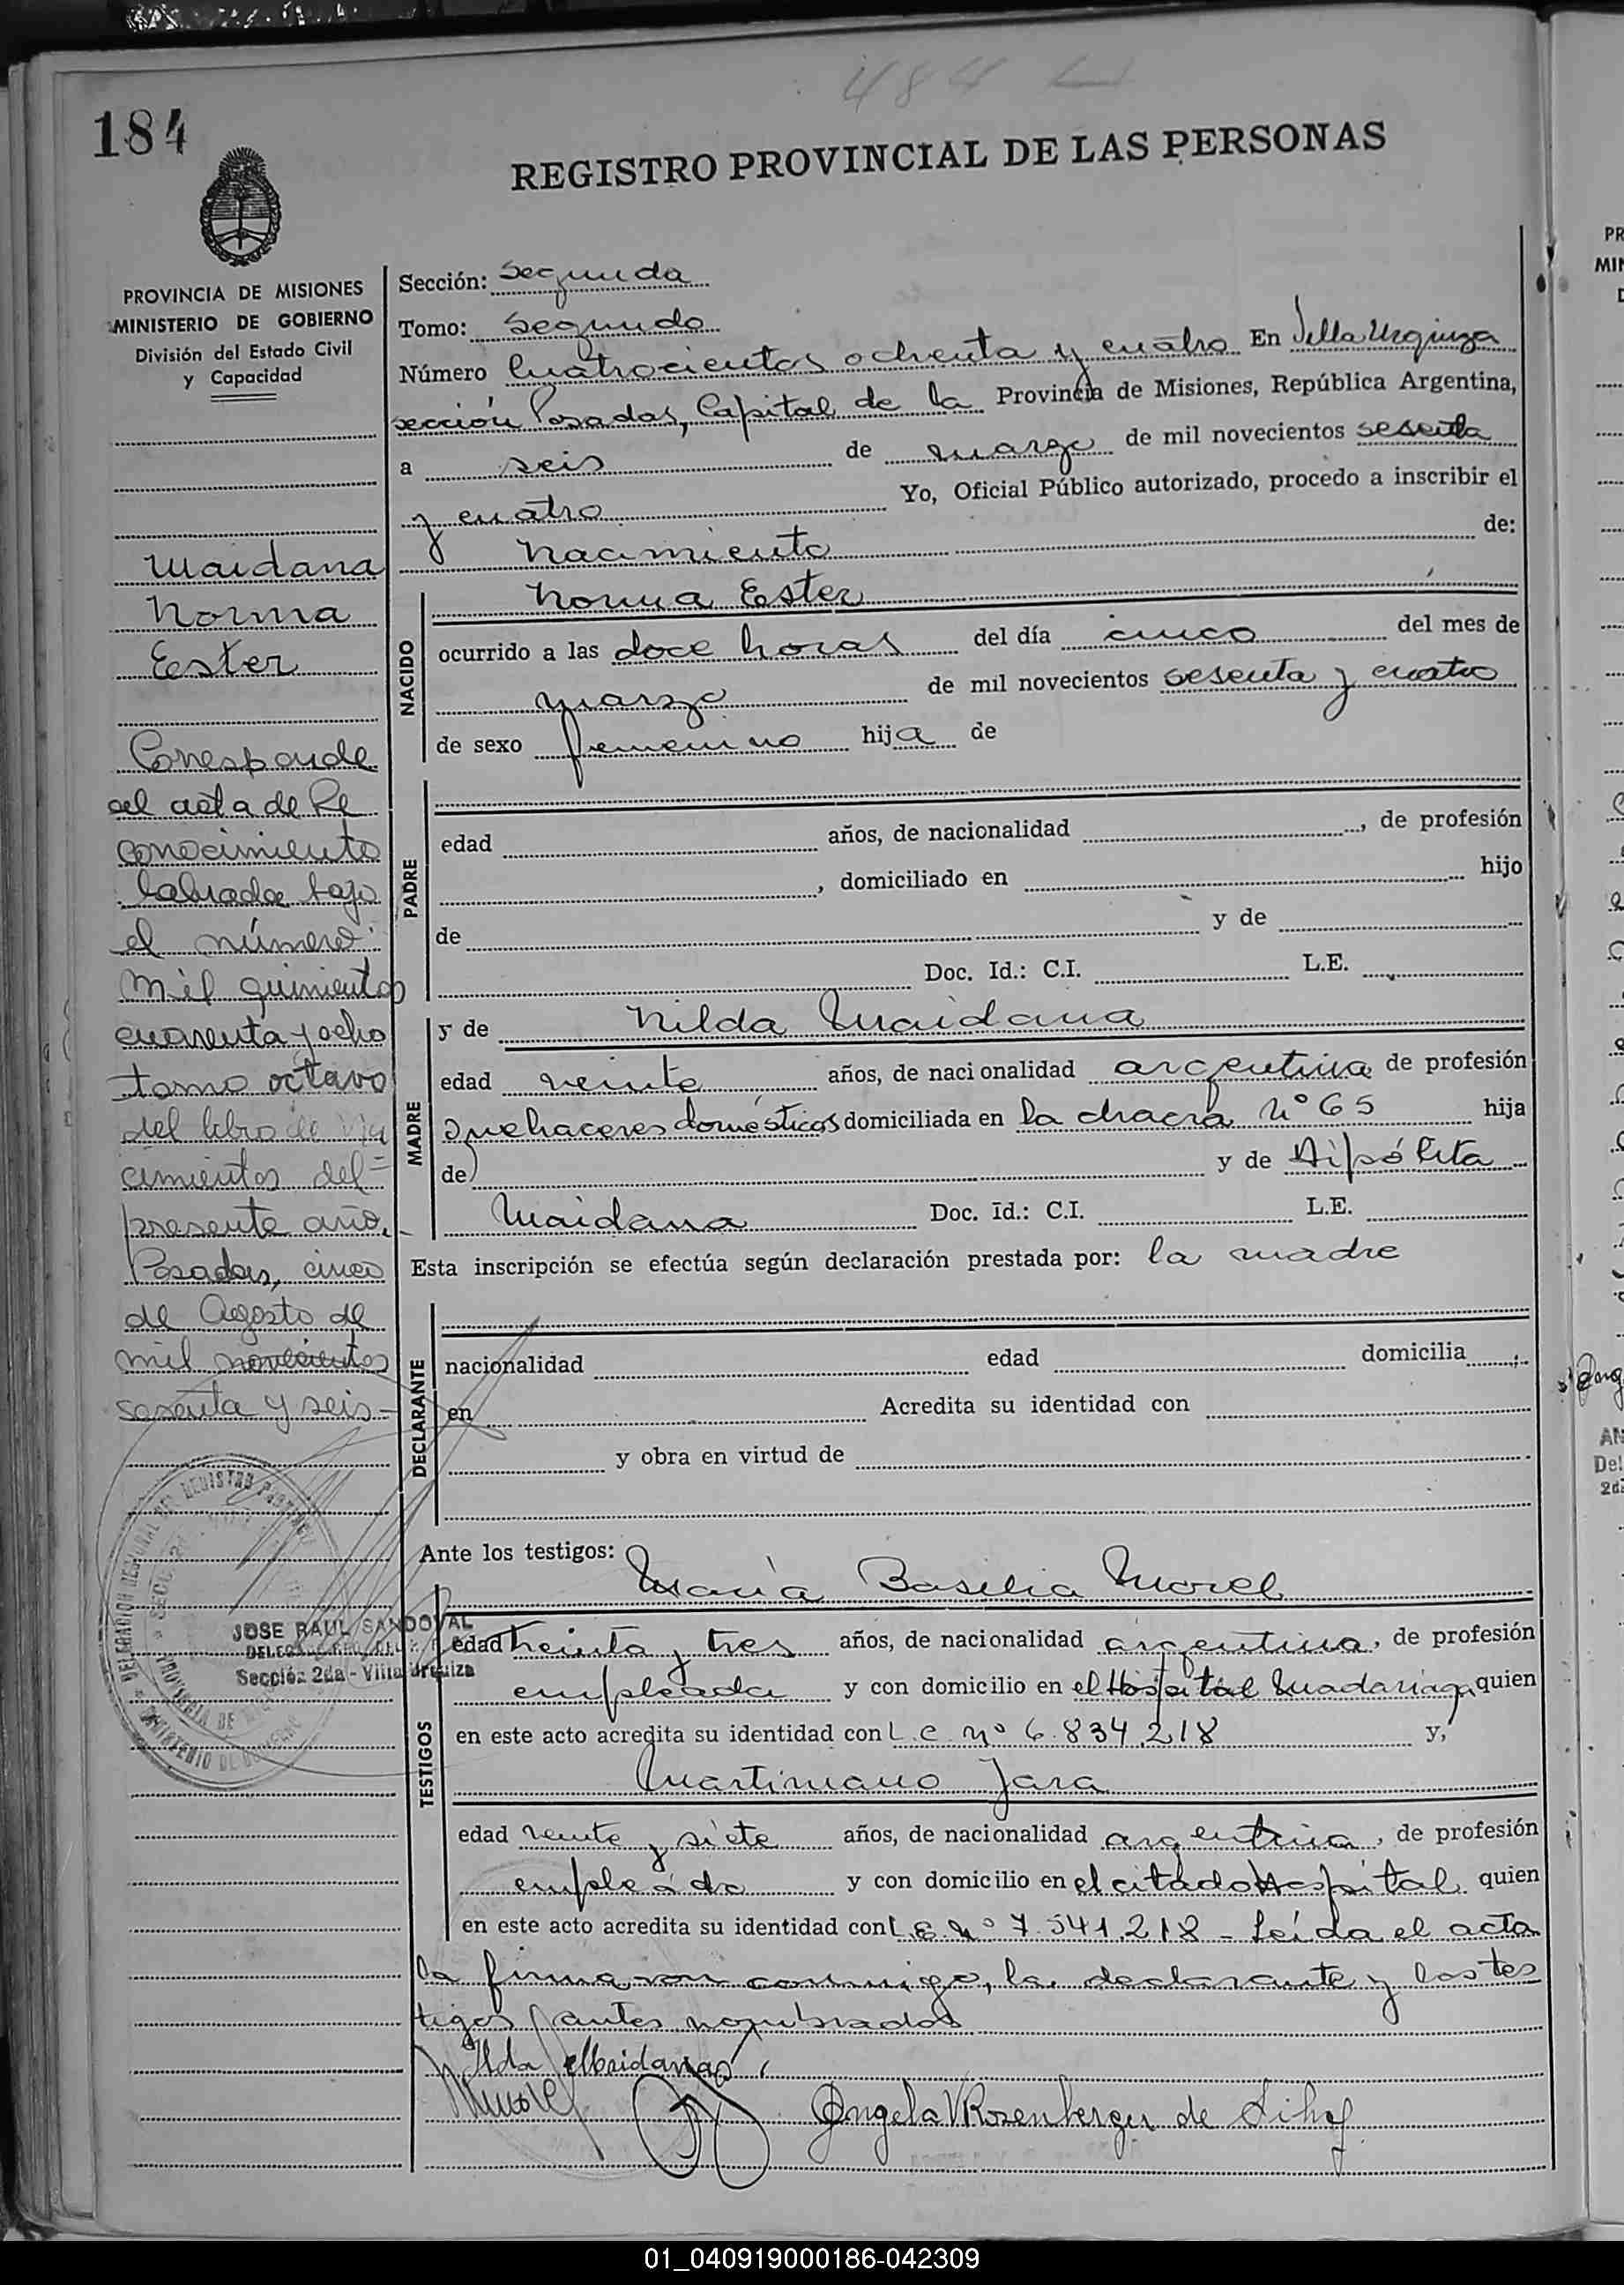 484
184
REGISTRO PROVINCIAL DE LAS PERSONAS
PROVINCIA DE MISIONES
MINISTERIO DE GOBIERNO
División del Estado Civil
y Capacidad
Maidana
Norma
Ester
Corresponde
al acta de Re
conocimiento
labrada bajo
el número
mil quinientos
cuarenta y ocho
tomo octavo
del libro de Na
cimientos del
presente año.
Posadas, cinco
de Agosto de
mil novecientos
sesenta y seis-
JOSE RAUL SANDOVAL
Sección 2da - Villa Urquiza
Sección: Segunda
Tomo: Segundo
Número Cuatrocientos ochenta y cuatro En Villa Urquiza
sección Posadas, Capital de la Provincia de Misiones, República Argentina,
a seis de marzo de mil novecientos sesenta
y cuatro Yo, Oficial Público autorizado, procedo a inscribir el
Nacimiento de:
NACIDO
Norma Ester
ocurrido a las doce horas del día cinco del mes de
marzo de mil novecientos sesenta y cuatro
de sexo femenino hija de
PADRE
edad años, de nacionalidad , de profesión
, domiciliado en hijo
de y de
Doc. Id.: C.I. L.E.
MADRE
y de Nilda Maidana
edad veinte años, de nacionalidad argentina de profesión
quehaceres domésticos domiciliada en la chacra Nº 65 hija
de y de Hipólita
Maidana Doc. id.: C.I. L.E.
Esta inscripción se efectúa según declaración prestada por: la madre
DECLARANTE
nacionalidad edad domicilia
en Acredita su identidad con
y obra en virtud de
Ante los testigos:
María Basilia Morel
TESTIGOS
edad treinta y tres años, de nacionalidad argentina, de profesión
empleada y con domicilio en el Hospital Madariaga, quien
en este acto acredita su identidad con L.C. nº 6.834.218 y,
Martiniano Jara
edad veinte y siete años, de nacionalidad argentina, de profesión
empleado y con domicilio en el citado Hospital quien
en este acto acredita su identidad con L.E. Nº 7.541.218 - Leída el acta
la firman conmigo, la declarante y los tes
tigos antes nombrados
Nilda Maidana
Morel
Angela V Rosenberger de
01_040919000186-042309